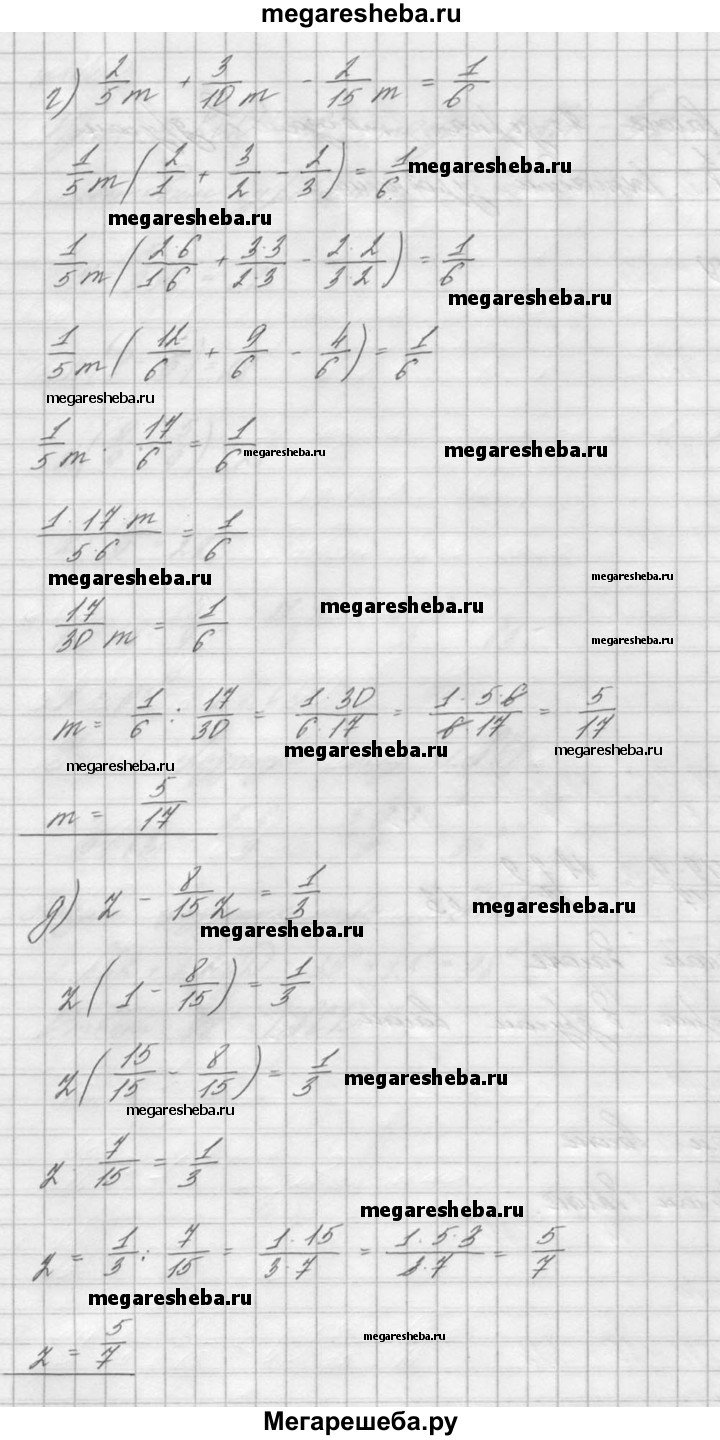 megaresheba.ru
г) 2/5 m + 3/10 m - 2/15 m = 1/6
1/5 m ( 2/1 + 3/2 - 2/3 ) = 1/6
megaresheba.ru
megaresheba.ru
1/5 m ( 2·6/1·6 + 3·3/2·3 - 2·2/3·2 ) = 1/6
megaresheba.ru
1/5 m ( 12/6 + 9/6 - 4/6 ) = 1/6
megaresheba.ru
1/5 m · 17/6 = 1/6
megaresheba.ru
megaresheba.ru
1·17·m/5·6 = 1/6
megaresheba.ru
megaresheba.ru
megaresheba.ru
17/30 m = 1/6
megaresheba.ru
m = 1/6 : 17/30 = 1·30/6·17 = 1·5·6/6·17 = 5/17
megaresheba.ru
megaresheba.ru
megaresheba.ru
m = 5/17
д) z - 8/15 z = 1/3
megaresheba.ru
megaresheba.ru
z ( 1 - 8/15 ) = 1/3
z ( 15/15 - 8/15 ) = 1/3
megaresheba.ru
megaresheba.ru
z · 7/15 = 1/3
megaresheba.ru
z = 1/3 : 7/15 = 1·15/3·7 = 1·5·3/3·7 = 5/7
megaresheba.ru
z = 5/7
megaresheba.ru
Мегарешеба.ру